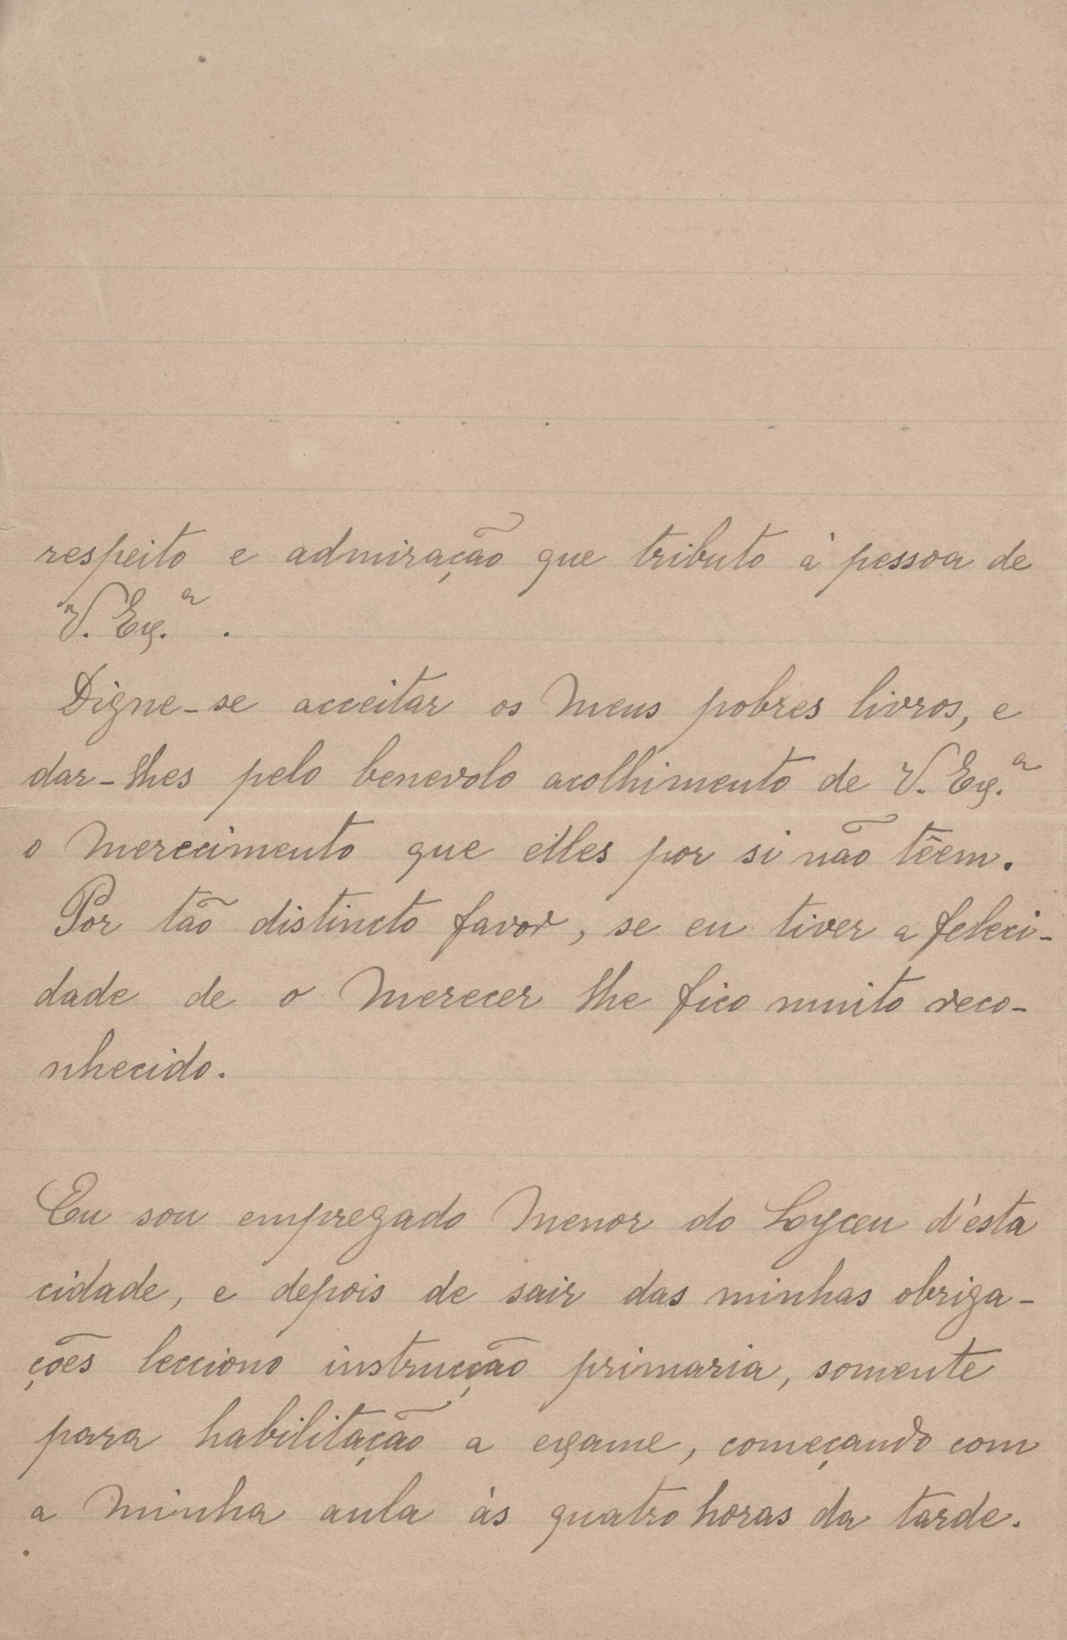 respeito e admiração que tributo á pessoa de
V. Ex.ª .
Digne-se acceitar os meus pobres livros, e
dar-lhes pelo benevolo acolhimento de V. Ex.ª
o merecimento que elles por si não têem.
Por tão distincto favor, se eu tiver a feleci-
dade de o merecer lhe fico muito reco-
nhecido.
Eu sou empregado menor do Lyceu d'esta
cidade, e depois de sair das minhas obriga-
ções lecciono instrucção primaria, somente
para habilitação a exame, começando com
a minha aula ás quatro horas da tarde.